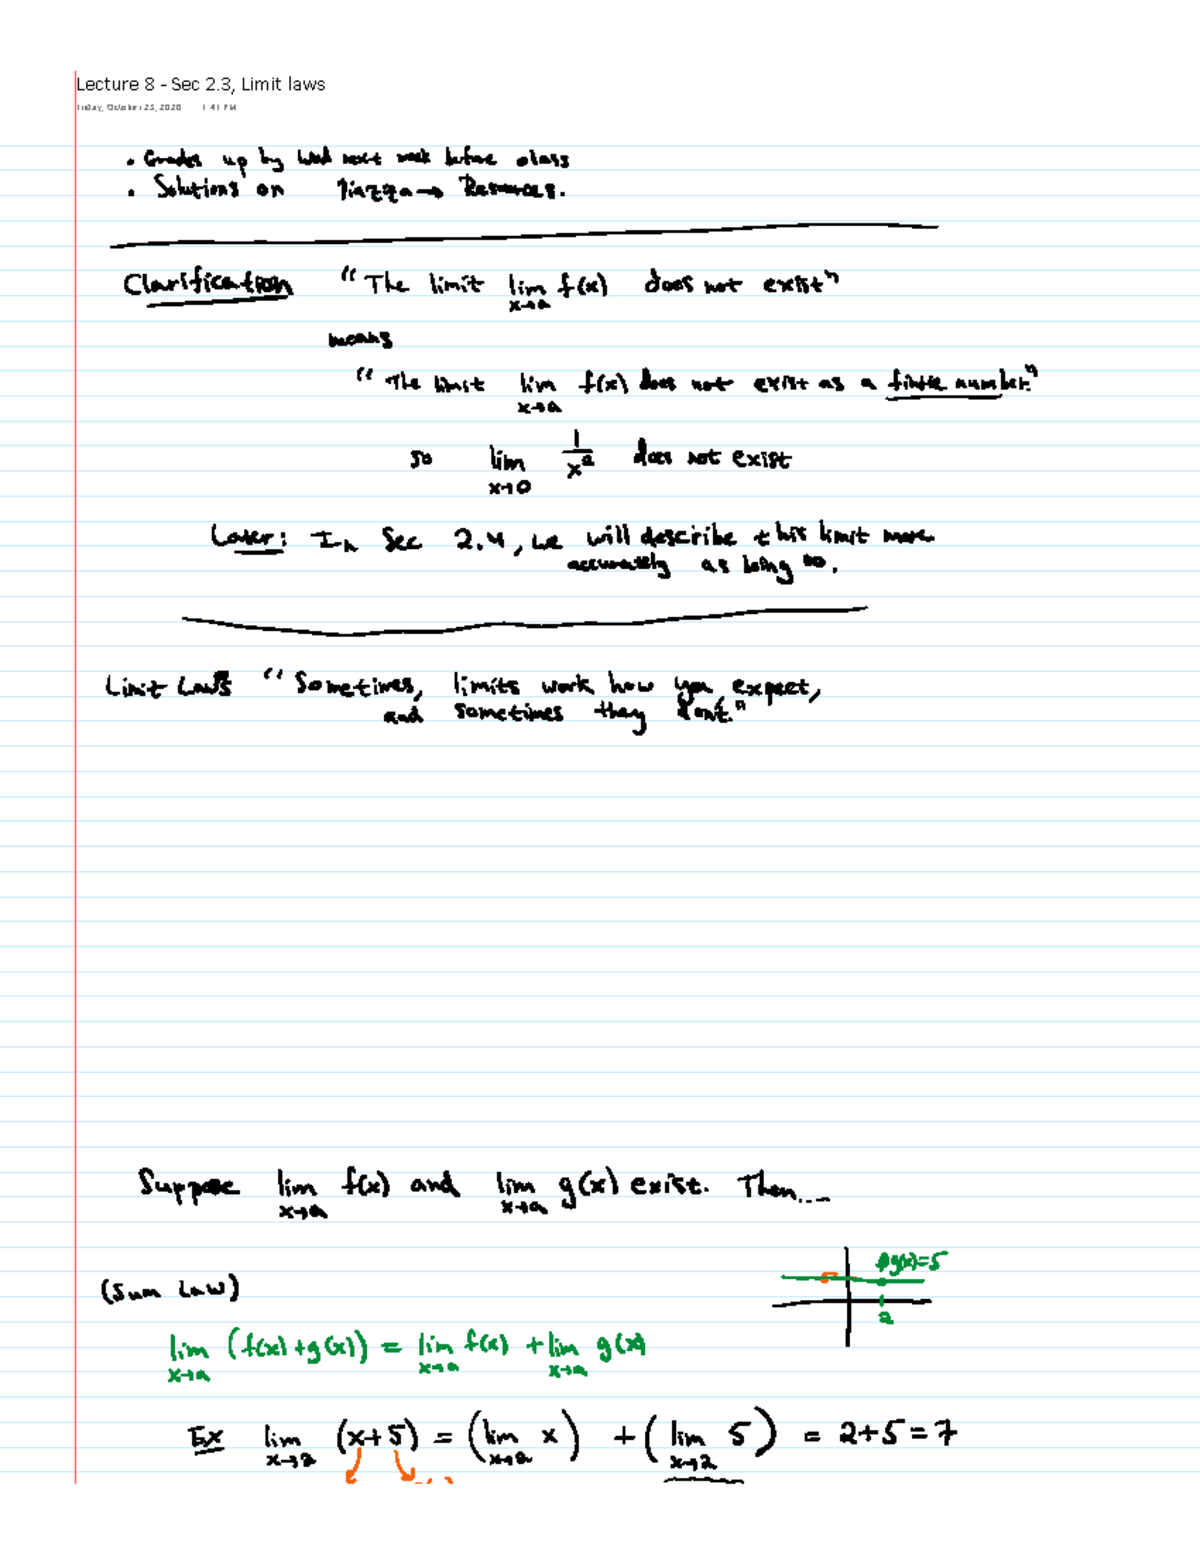 Lecture 8 - Sec 2.3, Limit laws
Friday, October 23, 2020 1:41 PM
• Grades up by Wed next week before class
• Solutions on Piazza → Resources.
Clarification "The limit lim x→a f(x) does not exist"
means
"The limit lim x→a f(x) does not exist as a finite number."
so lim x→0 1/x² does not exist
Later: In Sec 2.4, we will describe this limit more
accurately as being ∞.
Limit Laws "Sometimes, limits work how you expect,
and sometimes they don't."
Suppose lim x→a f(x) and lim x→a g(x) exist. Then....
g(x)=5
(Sum Law)
2
lim x→a (f(x)+g(x)) = lim x→a f(x) + lim x→a g(x)
Ex lim x→2 (x+5) = (lim x→2 x) + (lim x→2 5) = 2+5=7